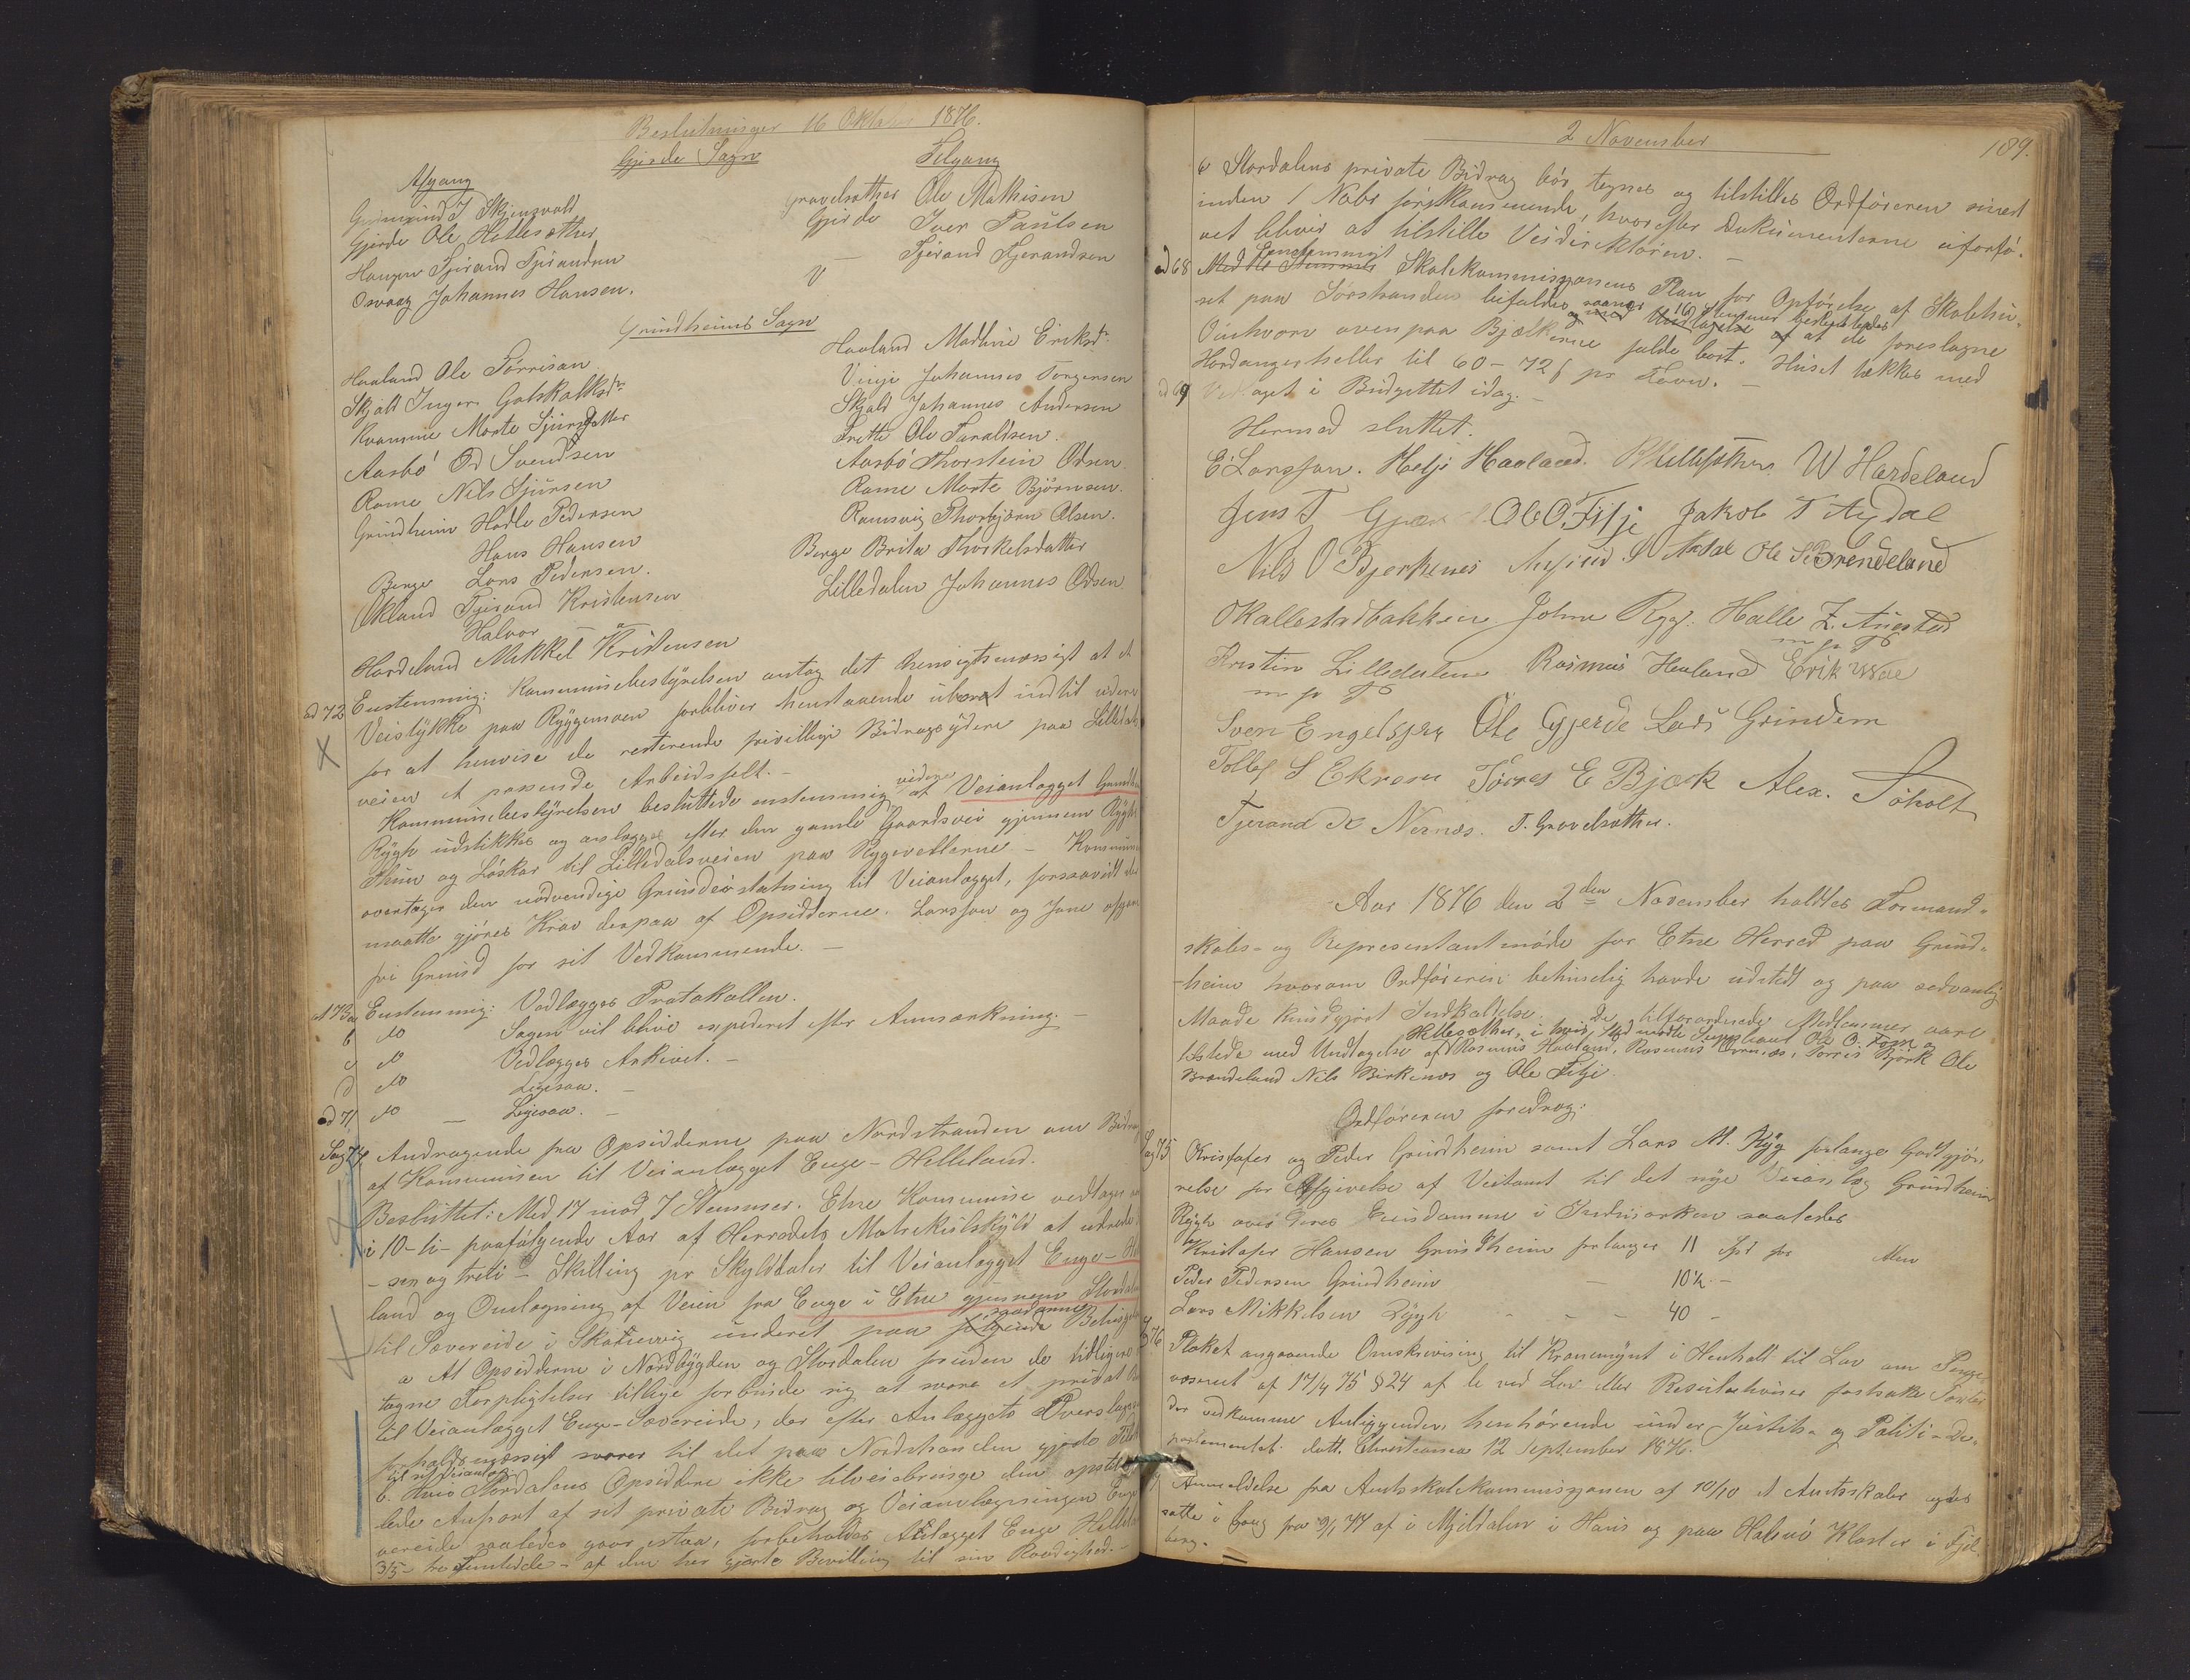 Beslutninger 16 Oktober 1876.
Gjerde Sogn
Afgang
Tilgang
Grimsrud J Skjensvold
Gjerde Ole Hellesæther
Haugen Tjerand Tjerandsen
Osvaag Johannes Hansen.
Gravelsæther Ole Mathisen
Gjerde Iver Paulsen
— Tjerand Tjerandsen
Grindheims Sogn
Haaland Ole Torrisen
Skjold Inger Gotskalksdr
Kvamme Marte Sjursdatter
Aasbø Od Svendsen
Rame Nils Sjursen
Grindheim Hadle Pedersen
Hans Hansen
Berge Lars Pedersen.
Økland Tjerand Kristensen
Halvor —
Hardeland Mikkel Kristensen
Haaland Madhrie Eriksdr
Vinje Johannes Torgersen
Skjold Johannes Andersen
Trette Ole Taraldsen.
Aasbø Thorstein Odsen.
Rame Marte Bjørnsen.
Ramsvig Thorbjørn Olsen.
Berge Brita Thorkelsdatter
Lilledalen Johannes Odsen
ad 72 Enstemmig: Kommunebestyrelsen antog det hensigtsmæssigt at de
Veistykke paa Ryggemoen forbliver henstaaende uberørt indtil videre
for at henvise de resterende frivillige Bidragsydere paa Lilledals
veien et passende Arbeidsfelt. —
Kommunebestyrelsen besluttede enstemmig videre at Veianlægget Grindheim
Rygh udstikkes og anlægges efter den gamle Gaardsvei gjennem Rygh
Thun og Løskar til Lilledalsveien paa Ryggevollerne. — Kommunen
overtager den nødvendige Grunderstatning til Veianlægget, forsaavidt der
maatte gjøres Krav derpaa af Opsidderne. Larsson og Jone afgav
fri Grund for sit Vedkommende. —
ad 73 a Enstemmig: Vedlægges Protokollen.
b do Sagen vil blive expederet efter Anmærkning. —
c do Vedlægges Arkivet. —
d do Ligesaa. —
ad 71 do — Ligesaa. —
Sag 74 Andragende fra Opsidderne paa Nordstranden om Bidrag
af Kommunen til Veianlægget Enge – Helleland.
Besluttet: Med 17 mod 7 Stemmer. Etne Kommune vedtager
i 10 – ti – paafølgende Aar af Herredets Matrikulskyld at udrede
– sex og treti – Skilling pr Skylddaler til Veianlægget Enge – Helle
land og Omlægning af Veien fra Enge i Etne gjennem Stordalen
til Sævereide i Skaanevig underet paa følgende saadanne Betingelser
a At Opsidderne i Nordbygden og Stordalen foruden de tidligere
tegne Forpligtelser tillige forbinde sig at svare et privat
til Veianlægget Enge – Sævereide, der efter Anlæggets Overslag
forholdsmæssigt svarer til det paa Nordstranden gjorde
til sit Veianlæg
b. Hvis Stordalens Opsiddere ikke tilveiebringe den opstil
lede Anpart af sit private Bidrag og Veianlægningen Enge
vereide saaledes gaar istaa, forbeholdes Anlægget Enge Helleland
3/5 – tre femtedele – af den her gjorte Bevilling til sin Raadighed.
2 November
189.
c Stordalens private Bidrag bør tegnes og tilstilles Ordføreren senest
inden 1 Novbr førstkommende, hvorefter Dokumenterne uforfø-
vet bliver at tilstille Veidirektøren. —
ad 68 Med 16 Stemmer Enstemmigt Skolekommissionens Plan for Opførelse af Skolehu-
set paa Sørstranden bifaldes med Undtagelse af at de foreslagne
Omhvorv ovenpaa Bjælkerne falde bort. Huset tækkes med
Hardangerheller til 60 – 72 ß pr Favn. —
ad 69 Vedtaget i Budgettet idag. —
Hermed sluttet.
E Larsson. Helje Haaland. R Hellesæther W Hardeland
Jens T Gjer Ole O. Fitje Jakob T Aydal
Nils O Bjerkenes Ole S Brendeland
O Kallestadbakken John Rygg. Halle Z. Austad
m p P
Kristen Lilledalen Rasmus Haaland Erik Wæe
m p P
Sven Engelsgjer Ole Gjerde Lars Grindem
Tollef S Ekren Torres E Bjørk Alex. Søholt
Tjerand Nernæs. T. Gravelsæther.
Aar 1876 den 2den November holdtes Formand-
skabs- og Representantmøde for Etne Herred paa Grind-
heim hvorom Ordføreren betimelig havde udstedt og paa sedvanlig
Maade kundgjort Indkaldelse. De tilforordnede Medlemmer vare
Hellesæther, i hvis Sted mødte Suppleant Ole O. Tom og
tilstede med Undtagelse af Rasmus Haaland, Rasmus Ørenæs, Torris Bjørk Ole
Brendeland Nils Birkenæs og Ole Fitje.
Ordføreren foredrog:
Sag 75 Kristofer og Peder Grindheim samt Lars M. Ryg forlange Godtgjø-
relse for Afgivelse af Veitomt til det nye Veianlæg Grindheim
Rygh over deres Eiendomme i Indmarken saaledes
Kristofer Hansen Grindheim forlanger 11 Spd for Alen
Peder Pedersen Grindheim — 10½ –
Lars Mikkelsen Rygh – – – 40 –
76 Plakat angaaende Omskrivning til Kronemynt i Henhold til Lov om Penge-
væsenet af 17/4 75 § 24 af de ved Lov eller Resolutioner fastsatte Taxter
der vedkomme Anliggender, henhørende under Justits- og Politi-De-
partementet. datt. Christiania 12 September 1876.
Anmeldelse fra Amtsskolekommissionen af 10/10 at Amtsskoler agtes
satte i Gang fra 9/1 77 af i Mjeldalen i Haus og paa Halsnø Kloster i Fjel-
berg.